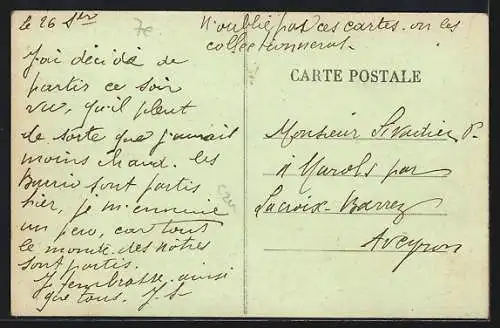 le 26 Sbre
7e
N'oubliez pas ces cartes. on les
collectionnerai.
J'ai décidé de
partir ce soir
vu, qu'il pleut
de sorte que j'aurait
moins chaud. les
sont partis
hier, je m'ennuie
un peu, car tout
le monde des nôtres
sont partis.
J. t'embrasse. ainsi
que tous. J. S
CARTE POSTALE
Monsieur P.
à Murols par
Lacroix-Barrez
Aveyron